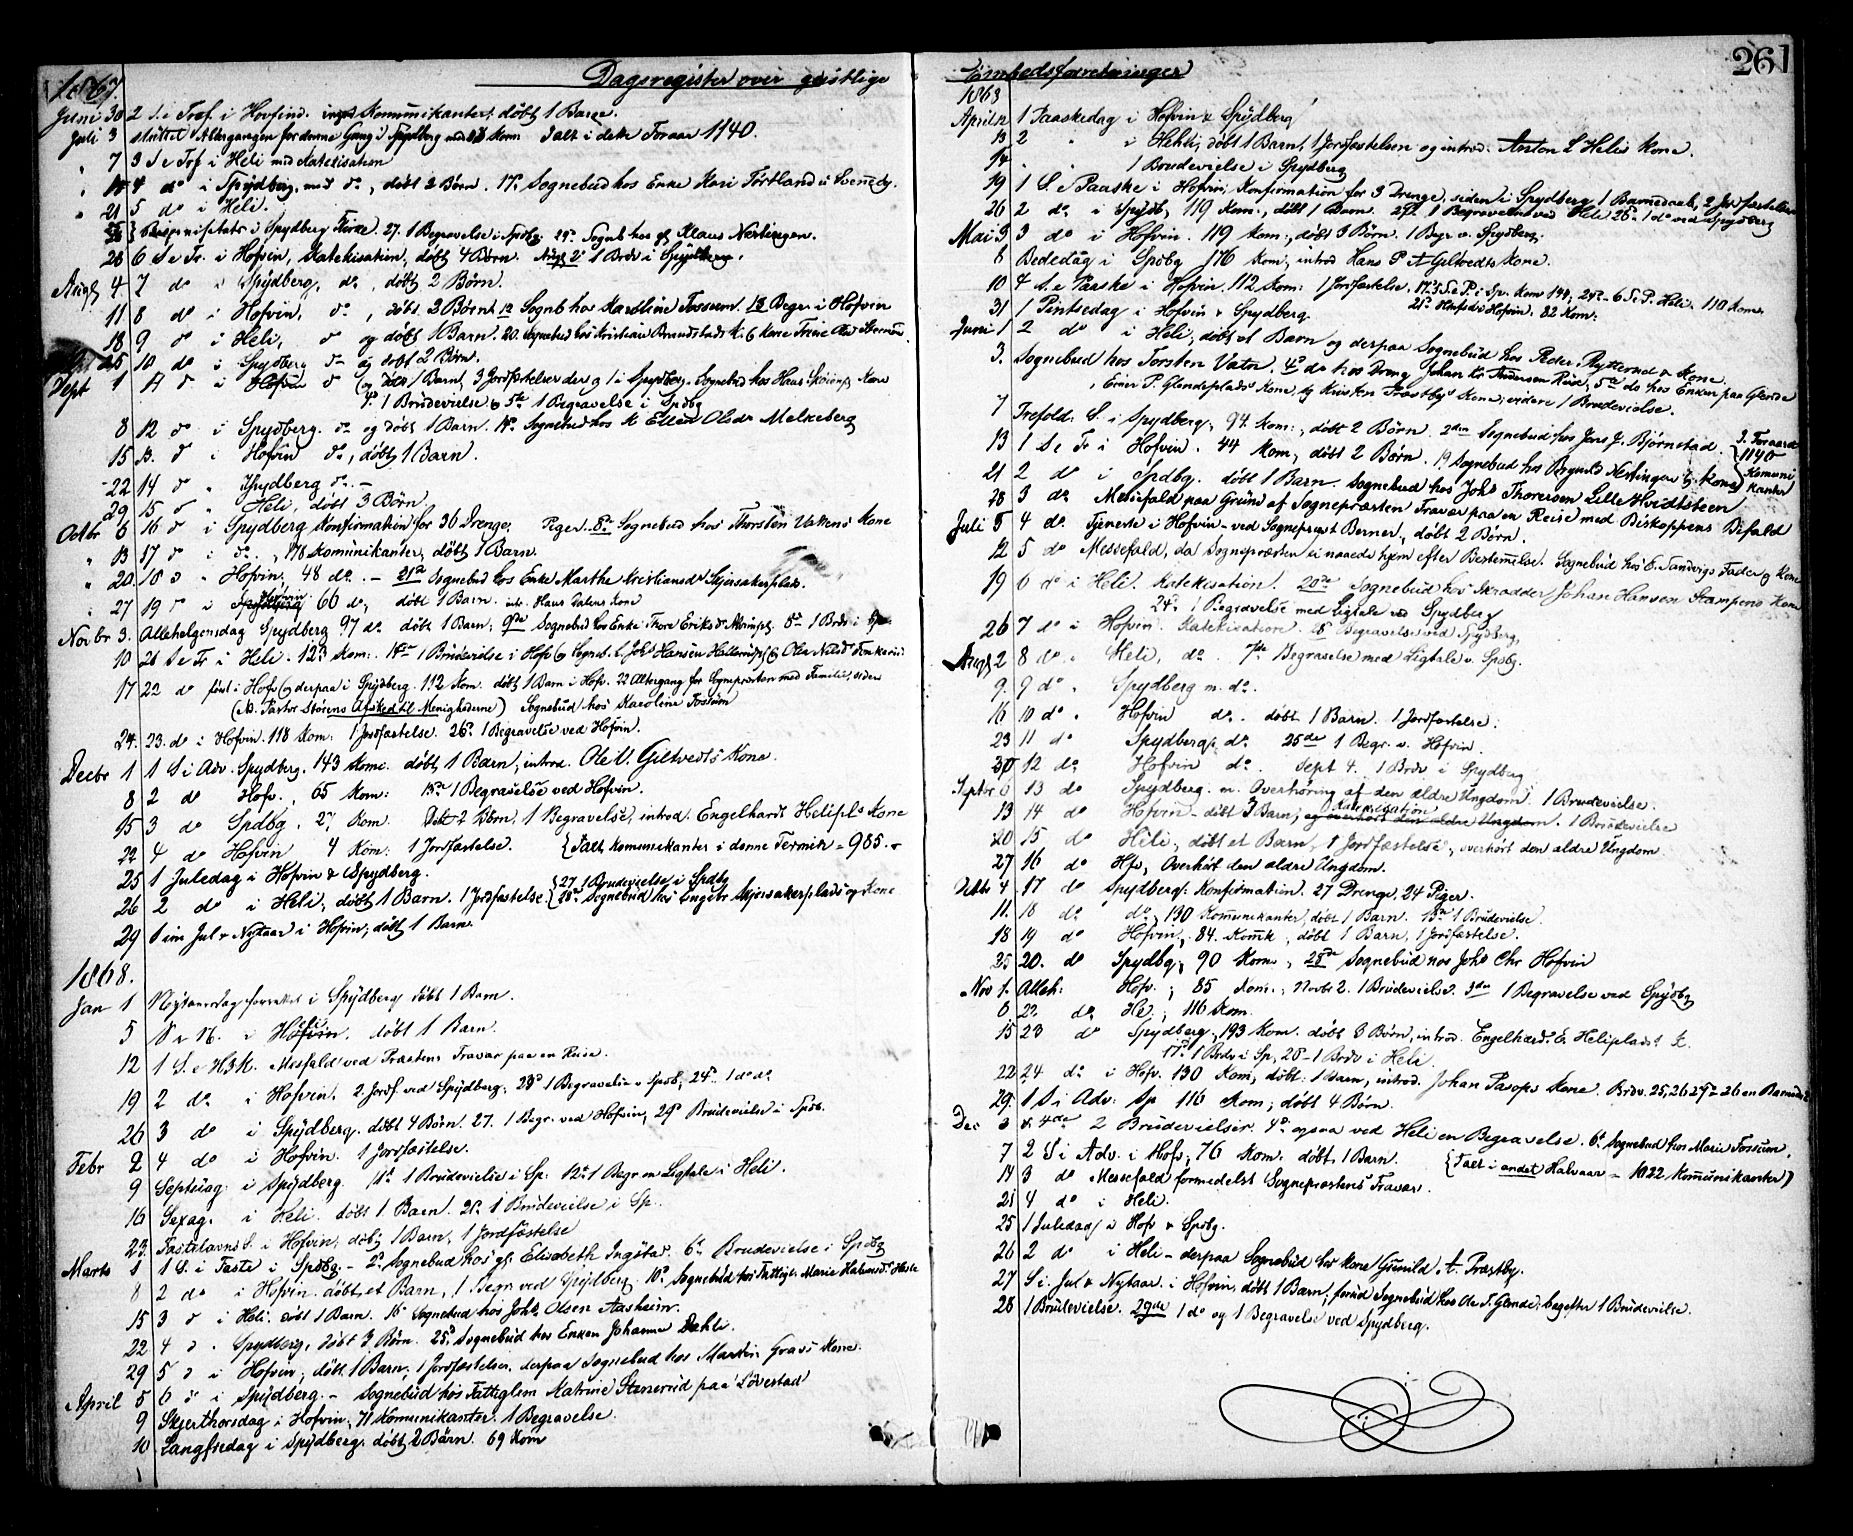 Dagsregister over geistlige Embedsforretninger
261
1867
Juni 30 2 S. e Tref. i Hovfind. Komunikanter: døbt 1 Barn.
Juli 3 sluttet Altergangen for denne Gang i Spydberg med Kom Talt i dette Foraar 1140.
" 7 3 S e Tref i Heli med Katekisation
" 14 4 do i Spydberg. med do, døbt 2 Børn. 17de Sognebud hos Enke Kari
" 21 5 do i Heli.
i Spydberg 27. 1 Begravelse i Spdbg. 29de Sognb hos Klaus Nertingen.
28 6 S e Tr. i Hofvin, Katekisation, døbt 4 Børn. Augs 2de 1 Brdv i Spydberg.
Augs 4. 7 do i Spydberg, do, døbt 2 Børn.
11 8 do i Hofvin, do, døbt 2 Børn 12 Sognb hos Karoline Fossum. 18 Begr. i Hofvin
18 9 do i Heli, do og døbt 1 Barn. 20. Sognebud hos Kristian
25 10 do i Spydberg do og døbt 2 Børn.
Sept 1 11 do i Hofvin do og døbt 1 Barn, 3 Jordfæstelser der og 1 i Spydberg. Sognebud hos Hans Kone
4de 1 Brudevielse 5te 1 Begravelse i Spdbg
8 12 do i Spydberg. do og døbt 1 Barn. Sognebud hos Ellen Olsdr Melkeberg
15 13. do i Hofvin do, døbt 1 Barn.
22 14 do " Spydberg do. -
29 15 do " Heli, døbt 3 Børn
Octbr 6 16 do i Spydberg Konfirmation for 36 Drenge, Piger. 8de Sognebud hos Thorsten Vatnens Kone
" 13 17 do i do., 178 Komunikanter, døbt 1 Barn.
" 20 18 do " Hofvin, 48 do. - 21de Sognebud hos Enke Marthe Kristiansdr Skjersakerplads.
" 27 19 do i Spydberg Hofvin 66 do, døbt 1 Barn. int. Hans Dalens Kone
Novbr 3. Allehelgensdag Spydberg 97 do døbt 1 Barn; 9de Sognebud hos Enke Thore Eriksdr 8de 1 Brdv i Sp
10 21 S e Tr i Heli. 123 Kom: 1 Brudevielse i Hofv og Sognb. Johs Hansen og Olea Nilsdr
17 22 do først i Hofv og derpaa i Spydberg. 112 Kom. døbt 1 Barn i Hofv. 22 Altergang for Sognepræsten med Familie, siden
(NB. Pastor Størens Afsked til Menighederne) Sognebud hos Karoline Fossum
24. 23. do i Hofvin. 118 Kom: 1 Jordfæstelse. 26de 1 Begravelse ved Hofvin.
Decbr 1 1 S i Adv. Spydberg. 143 Kom. døbt 1 Barn, introd. Ole Giltvedts Kone.
8 2 do Hofv., 65 Kom: 15de 1 Begravelse ved Hofvin.
15 3 do Spdbg. 27 Kom. Døbt 2 Børn, 1 Begravelse, introd. Engelhardt Helipls Kone
22 4 do Hofvin 4 Kom: 1 Jordfæstelse. {Talt Komunikanter i denne Termin - 985. -
25 1 Juledag i Hofvin & Spydberg. {27. 1 Brudevielse i Spdbg
26 2 do i Heli, døbt 1 Barn. 1 Jordfæstelse. {28de Sognebud hos Engebr Skjersakerplads og Kone
29 S im Jul & Nytaar i Hofvin, døbt 1 Barn.
1868.
Jan 1 Nytaarsdag forrettet i Spydberg døbt 1 Barn.
5 S e N. i Hofvin Heli. døbt 1 Barn.
12 1 S. e H3K. Mesfald ved Præstens Fravær paa en Reise.
19 2 do i Hofvin, 2 Jordf. ved Spydberg, 23de 1 Begravelse v Spdb, 24de 1 do do
26 3 do i Spydberg. døbt 4 Børn. 27. 1 Begr. ved Hofvin, 29de Brudevielse i Spdb.
Febr 2 4 do i Hofvin. 1 Jordfæstelse.
9 Septuag. i Spydberg. 11te 1 Brudevielse i Sp: 12te 1 Begr m Ligtale i Heli.
16 Sexag. i Heli. døbt 1 Barn. 21de 1 Brudevielse i Sp..
23. Fastelavns S. i Hofvin; døbt 1 Barn, 1 Jordfæstelse
Marts 1 1 S. i Faste i Spdbg: - 2de Sognebud hos gl. Elisabeth Ingstad. 6te Brudevielse i Spdbg
8 2 do i Hofvin. døbt et Barn, 1 Begr ved Spydberg. 10de Sognebud hos Fattigl. Marie
15 3 do i Heli. døbt 1 Barn. 16 Sognebud hos Johs. Olsen Aasheim.
22 4 do. Spydberg, døbt 3 Børn. 25de Sognebud hos Enken Johanne Dæhli.
29 5 do i Hofvin; døbt 1 Barn; 1 Jordfæstelse, derpaa Sognebud hos Martin Gravs Kone.
April 5 6 do i Spydberg. - Sognebud hos Fattiglem Mathine Stenerud paa Løvestad
9 Skjerthorsdag i Hofvin, 71 Komunikanter. 1 Begravelse.
10 Langfredag i Spydberg døbt 2 Børn. 69 Kom
1868
April 12 1 Paaskedag i Hofvin & Spydberg
13 2 " i Hehli, døbt 1 Barn, 1 Jordfæstelsen og introd. Anton L Helis Kone.
14 " . 1 Brudevielse i Spydberg
19 1 S. e Paaske i Hofvin; Konfirmation for 3 Drenge, siden i Spydberg 1 Barnedaab, 2 Jordfæstelser
26 2 do i Spydb, 119 Kom., døbt 1 Barn. 27de 1 Begravelse ved Heli 28de 1 do ved Spydberg
Mai 3 3 do i Hofvin. 119 Kom:, døbt 3 Børn. 1 Begr v. Spydberg.
8 Bededag i Spdbg 176 Kom, introd Hans P A Giltvedts Kone.
10 4 S. e Paaske i Hofvin 112 Kom: 1 Jordfæstelse, 17. 5 S e P. i Sp. Kom 144, 24de - 6 S e P. Heli. 110 Kom.
31 1 Pintsedag i Hofvin & Spydberg. Hofvin. 82 Kom:
Juni 1 2 do i Heli, døbt et Barn og derpaa Sognebud hos Peder Rytterød & Kone
3. Sognebud hos Torsten Vatn. 4de do hos Dreng Johan Kr Andersen Riis, 5te do hos Enken paa Glende
Einer P. Glendeplads' Kone, og Kristen Præstby's Kone, videre 1 Brudevielse.
7 Trefold. S. i Spydberg, 94 Kom:, døbt 2 Børn. 2den Sognebud hos Jens J. Bjørnstad.
13 1 S e Tr i Hofvin. 44 Kom, døbt 2 Børn. 19 Sognebud hos Nertingen & Kone
I Foraaret 1140 Komunikanter
21 2 do i Spdbg. døbt 1 Barn. Sognebud hos Johs Thoresen Lille Hvidtsteen
28 3 do Messefald paa Grund af Sognepræsten Fravær paa en Reise med Biskoppens Bifald
Juli 5 4 do. Tjeneste i Hofvin - ved Sogneprest Berner, døbt 2 Børn.
12 5 do Messefald, da Sognepræsten ei naaede hjem efter Bestemmelse. Sognebud hos E. Sandvigs Fader og Kone
19 6 do i Heli. Katekisation. 20de Sognebud hos Skrædder Johan Hansen Stampens Kone
24de 1 Begravelse med Ligtale ved Spydberg
26 7 do i Hofvin. Katekisation. 28 Begravelse ved Spydberg,
Augs 2 8 do i Heli, do. 7de Begravelse med Ligtale v. Spdbg.
9. 9 do. Spydberg m. do.
16 10 do. Hofvin do. døbt 1 Barn. 1 Jordfæstelse:
23 11 do Spydberg, do. 25de 1 Begr. v. Hofvin.
30 12 do. Hofvin do. Sept 4. 1 Brdv i Spydberg
Septbr 6 13 do Spydberg. m. Overhøring af den ældre Ungdom. 1 Brudevielse.
13 14 do Hofvin - døbt 3 Barn; og overhørt den ældre Ungdom Katekisation. 1 Brudevielse
20 15 do Heli, døbt et Barn, 1 Jordfæstelse, overhørt den ældre Ungdom.
27 16 do Hfv, Overhørt den ældre Ungdom.
Octbr 4. 17 do Spydberg: Konfirmation. 27 Drenge, 24 Piger.
11. 18 do. do, 130 Komunikanter, døbt 1 Barn. 15de 1 Brudevielse.
18 19 do Hofvin, 84. Komk, døbt 1 Barn, 1 Jordfæstelse.
25 20. do Spydbg, 90 Kom., 28de Sognebud hos Johs Chr Hofvin
Nov 1. Alleh: Hofv., 85 Kom:, Novbr 2. 1 Brudevielse. 3die 1 Begravelse ved Spydbg
8 22 do Heli, 116 Kom.
15 23 do Spydberg, 193 Kom. døbt 3 Børn, introd. Engelhard E. Heliplads' K.
17de 1 Brdv i Sp, 20 - 1 Brdv i Heli.
22 24 do i Hofv. 130 Kom, døbt 1 Barn, introd. Johan Kone Brdv. 25, 26 27de 26 en Barned
29. 1 S i Adv: Sp 116 Kom; døbt 4 Børn.
Dec 3 & 4de 2 Brudevielser. 4de ogsaa ved Heli en Begravelse. 6te Sognebud hos Marie Fossum.
7 2 S i Adv. i Hofv, 76 Kom. døbt 1 Barn. {Talt i andet Halvaar - 1022 Komunikanter)
14 3 do Messefald formedelst Sognepræstens Fravær.
21 4 do i Heli.
25 1 Juledag i Hofv & Spdbg.
26 2 do i Heli - derpaa Sognebud hos Kone Gunild A. Præstby.
27 S i. Jul & Nytaar. i Hofvin, døbt 1 Barn, forud Sognebud hos Ole T. Glende; bagefter 1 Brudevielse.
28 1 Brudevielse. 29de 1 do og 1 Begravelse ved Spydberg.